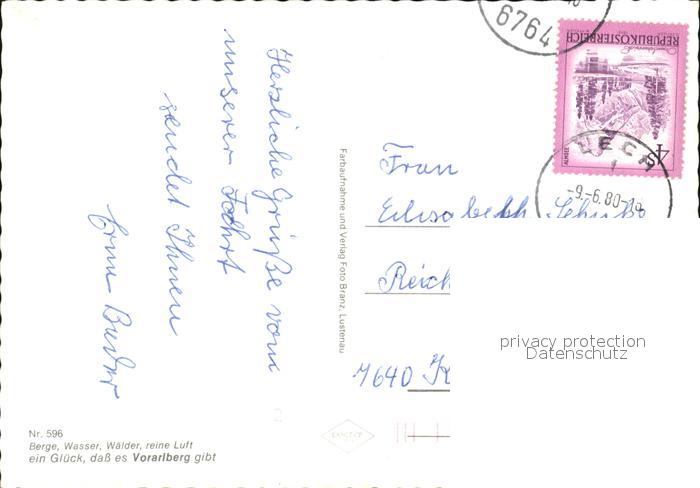 Herzliche Grüße vom
unserer Fahrt
sendet Ihnen
Erna
Nr. 596
Berge, Wasser, Wälder, reine Luft
ein Glück, daß es Vorarlberg gibt
Farbaufnahme und Verlag Foto Branz, Lustenau
6764
REPUBLIK ÖSTERREICH
ALMSEE
S4
LECH
-9.-6.80-18
Frau
Elisabeth
Reich
7640 K
privacy protection
Datenschutz